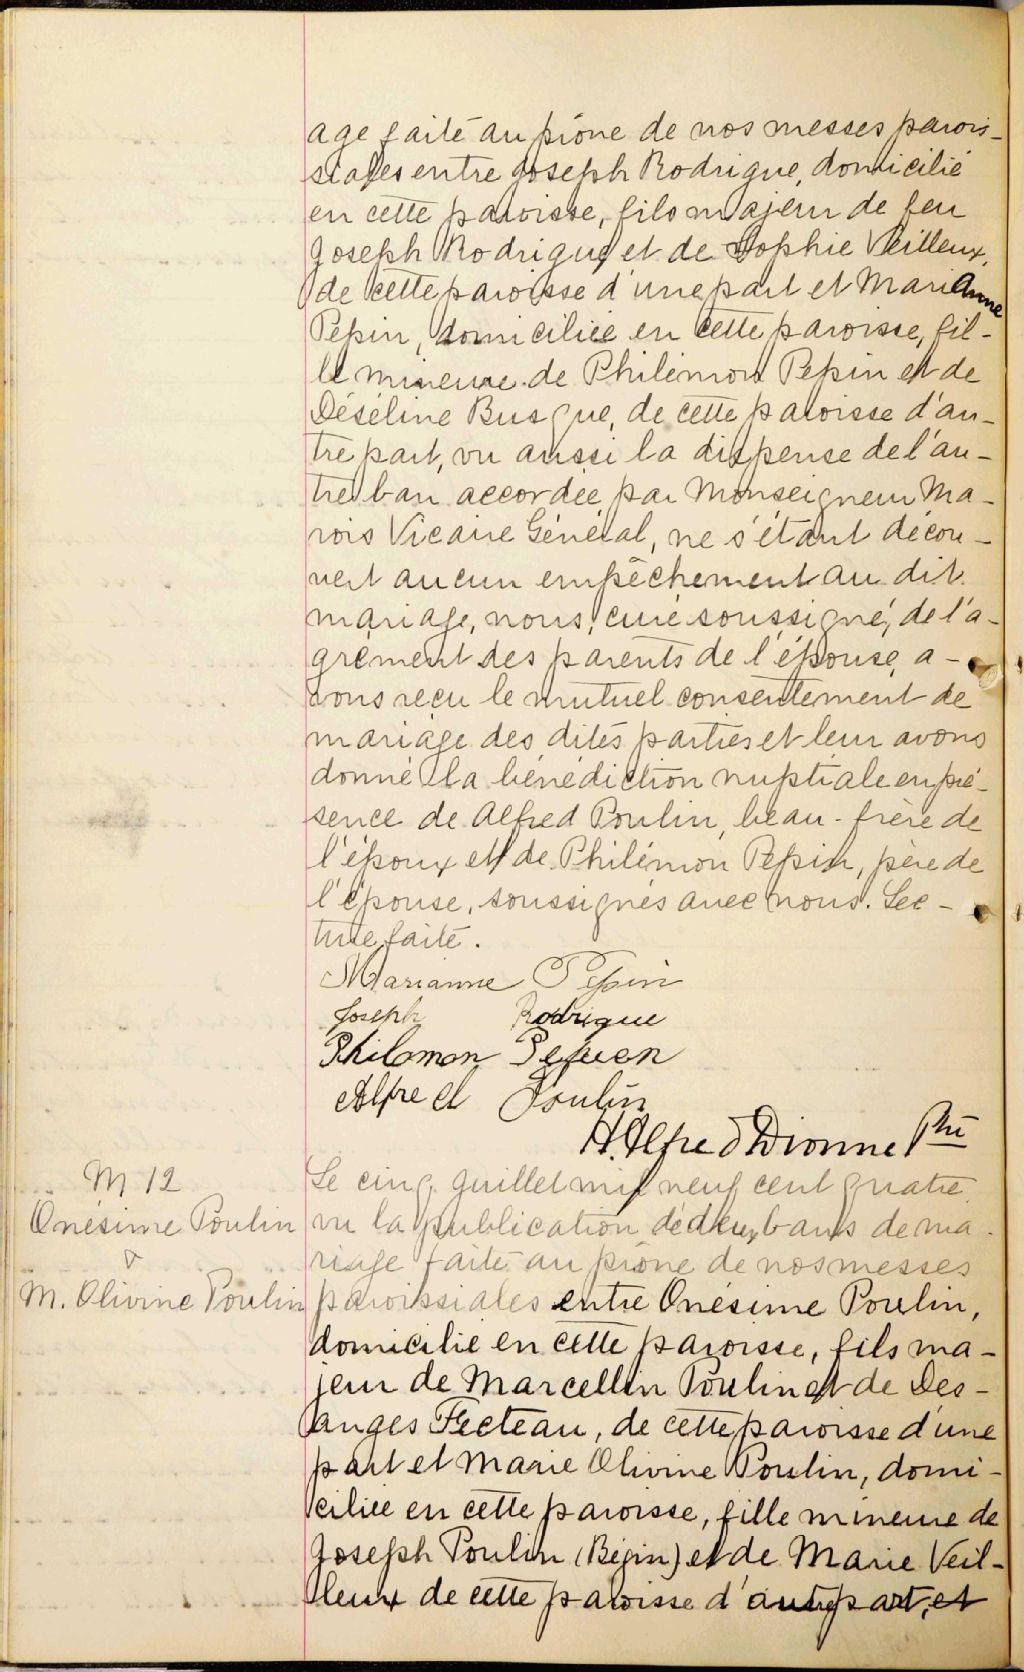 age faite au prône de nos messes parois-
siales entre Joseph Rodrigue, domicilié
en cette paroisse, fils majeur de feu
Joseph Rodrigue et de Sophie Veilleux,
de cette paroisse d'une part et Marianne
Pepin, domiciliée en cette paroisse, fil-
le mineure de Philémon Pepin et de
Déséline Busque, de cette paroisse d'au-
tre part, vu aussi la dispense de l'au-
tre ban accordée par Monseigneur Ma-
rois Vicaire Général, ne s'étant décou-
vert aucun empêchement au dit
mariage, nous, curé soussigné, de l'a-
grément des parents de l'épouse, a-
vons reçu le mutuel consentement de
mariage des dites parties et leur avons
donné la bénédiction nuptiale en pré-
sence de Alfred Poulin, beau-frère de
l'époux et de Philémon Pepin, père de
l'épouse, soussignés avec nous. Lec-
ture faite.
Marianne Pepin
Joseph Rodrigue
Philemon Pepin
Alfred Poulin
H. Alfred Dionne Ptre
M 12
Onésime Poulin
&
M. Olivine Poulin
Le cinq Juillet mil neuf cent quatre
vu la publication de deux bans de ma-
riage faite au prône de nos messes
paroissiales entre Onésime Poulin,
domicilié en cette paroisse, fils ma-
jeur de Marcellin Poulin et de Des-
anges Fecteau, de cette paroisse d'une
part et Marie Olivine Poulin, domi-
ciliée en cette paroisse, fille mineure de
Joseph Poulin (Bégin) et de Marie Veil-
leux de cette paroisse d'autre part, et